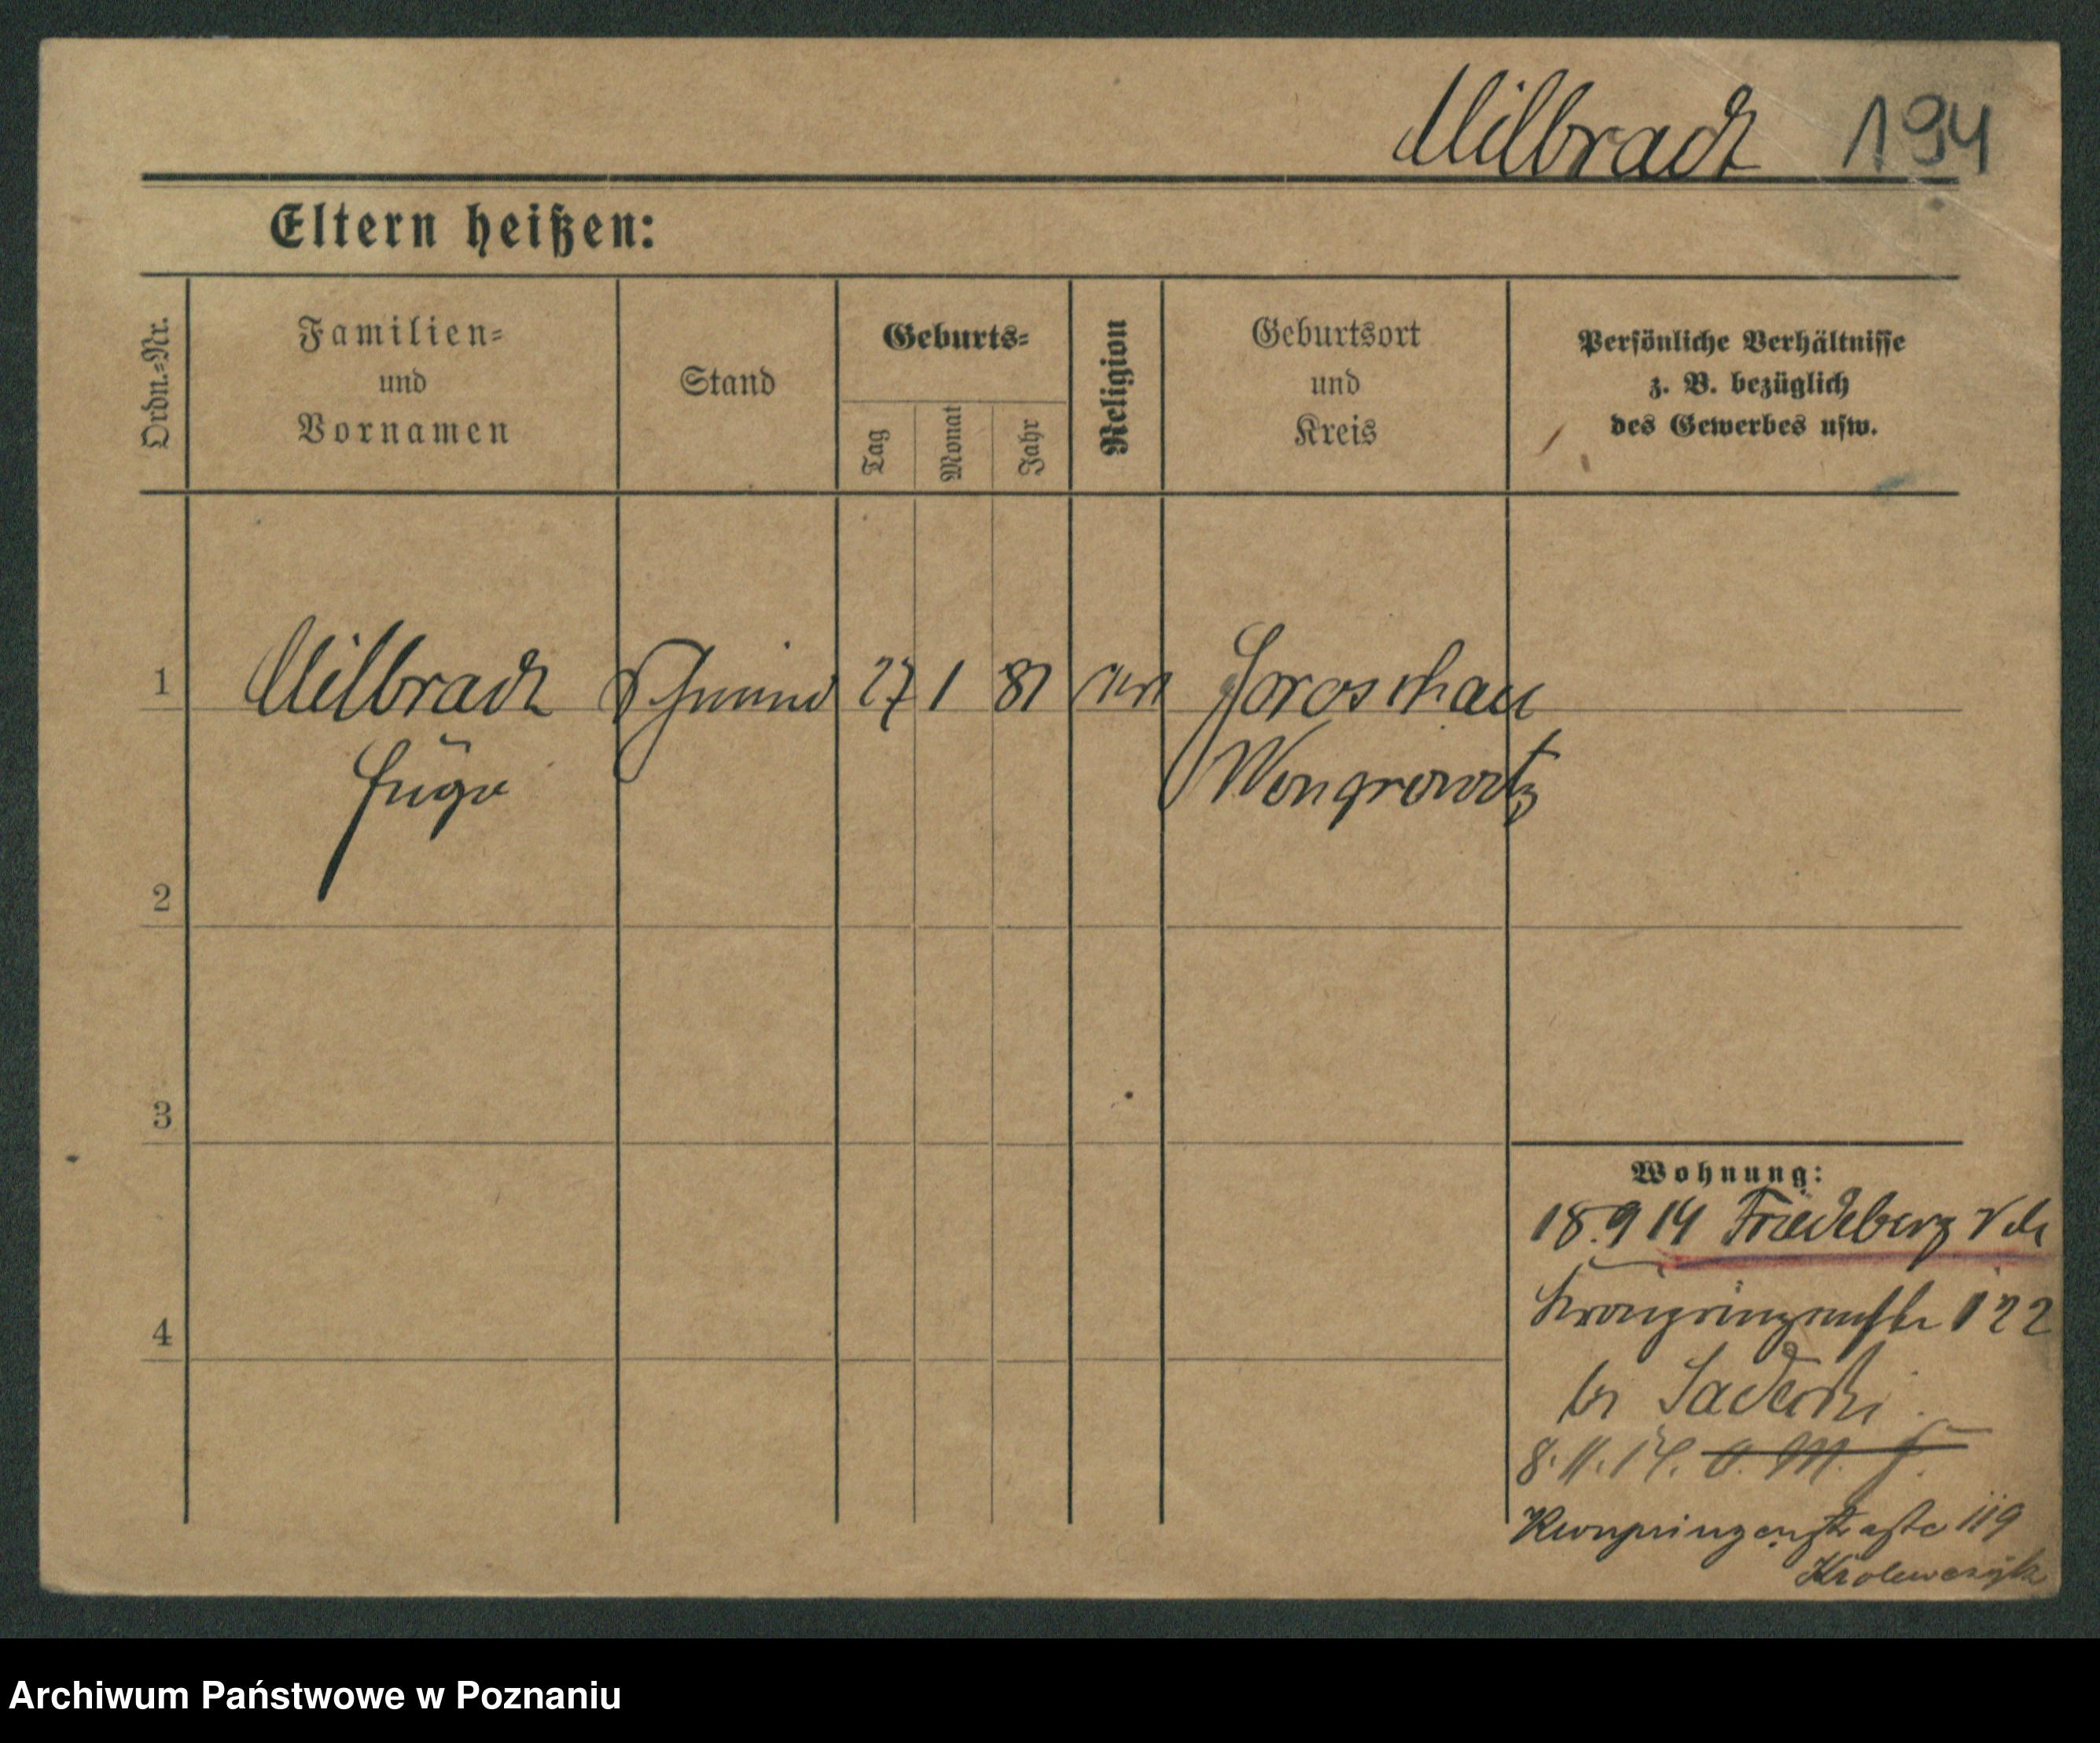 Milbradt 194
Eltern heißen:
Ordn.-Nr.
Familien-
und
Vornamen
Stand
Geburts-
Tag
Monat
Jahr
Religion
Geburtsort
und
Kreis
Persönliche Verhältnisse
z. B. bezüglich
des Gewerbes usw.
1 Milbradt Schmied 27 1 81
Wongrowitz
2
3
4
Wohnung:
18.9 14 Friedeberg
Kronprinzenstr 122
8.11.14. v. M. F.
Kronprinzenstraße 119
Krolewczyk
Archiwum Państwowe w Poznaniu